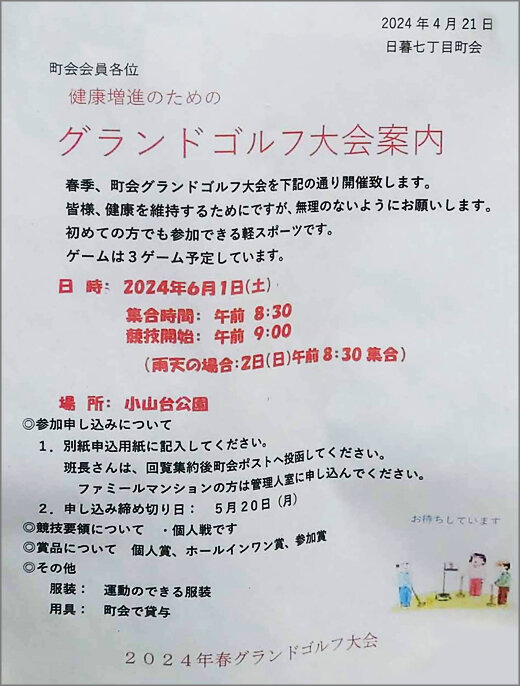 2024年4月21日
日暮七丁目町会
町会会員各位
健康増進のための
グランドゴルフ大会案内
春季、町会グランドゴルフ大会を下記の通り開催致します。
皆様、健康を維持するためにですが、無理のないようにお願いします。
初めての方でも参加できる軽スポーツです。
ゲームは3ゲーム予定しています。
日 時: 2024年6月1日(土)
集合時間: 午前 8:30
競技開始: 午前 9:00
(雨天の場合:2日(日)午前8:30集合)
場 所: 小山台公園
◎参加申し込みについて
1.別紙申込用紙に記入してください。
班長さんは、回覧集約後町会ポストへ投函してください。
ファミールマンションの方は管理人室に申し込んでください。
2.申し込み締め切り日: 5月20日(月)
◎競技要領について ・個人戦です
◎賞品について 個人賞、ホールインワン賞、参加賞
◎その他
服装: 運動のできる服装
用具: 町会で貸与
お待ちしています
2024年春グランドゴルフ大会